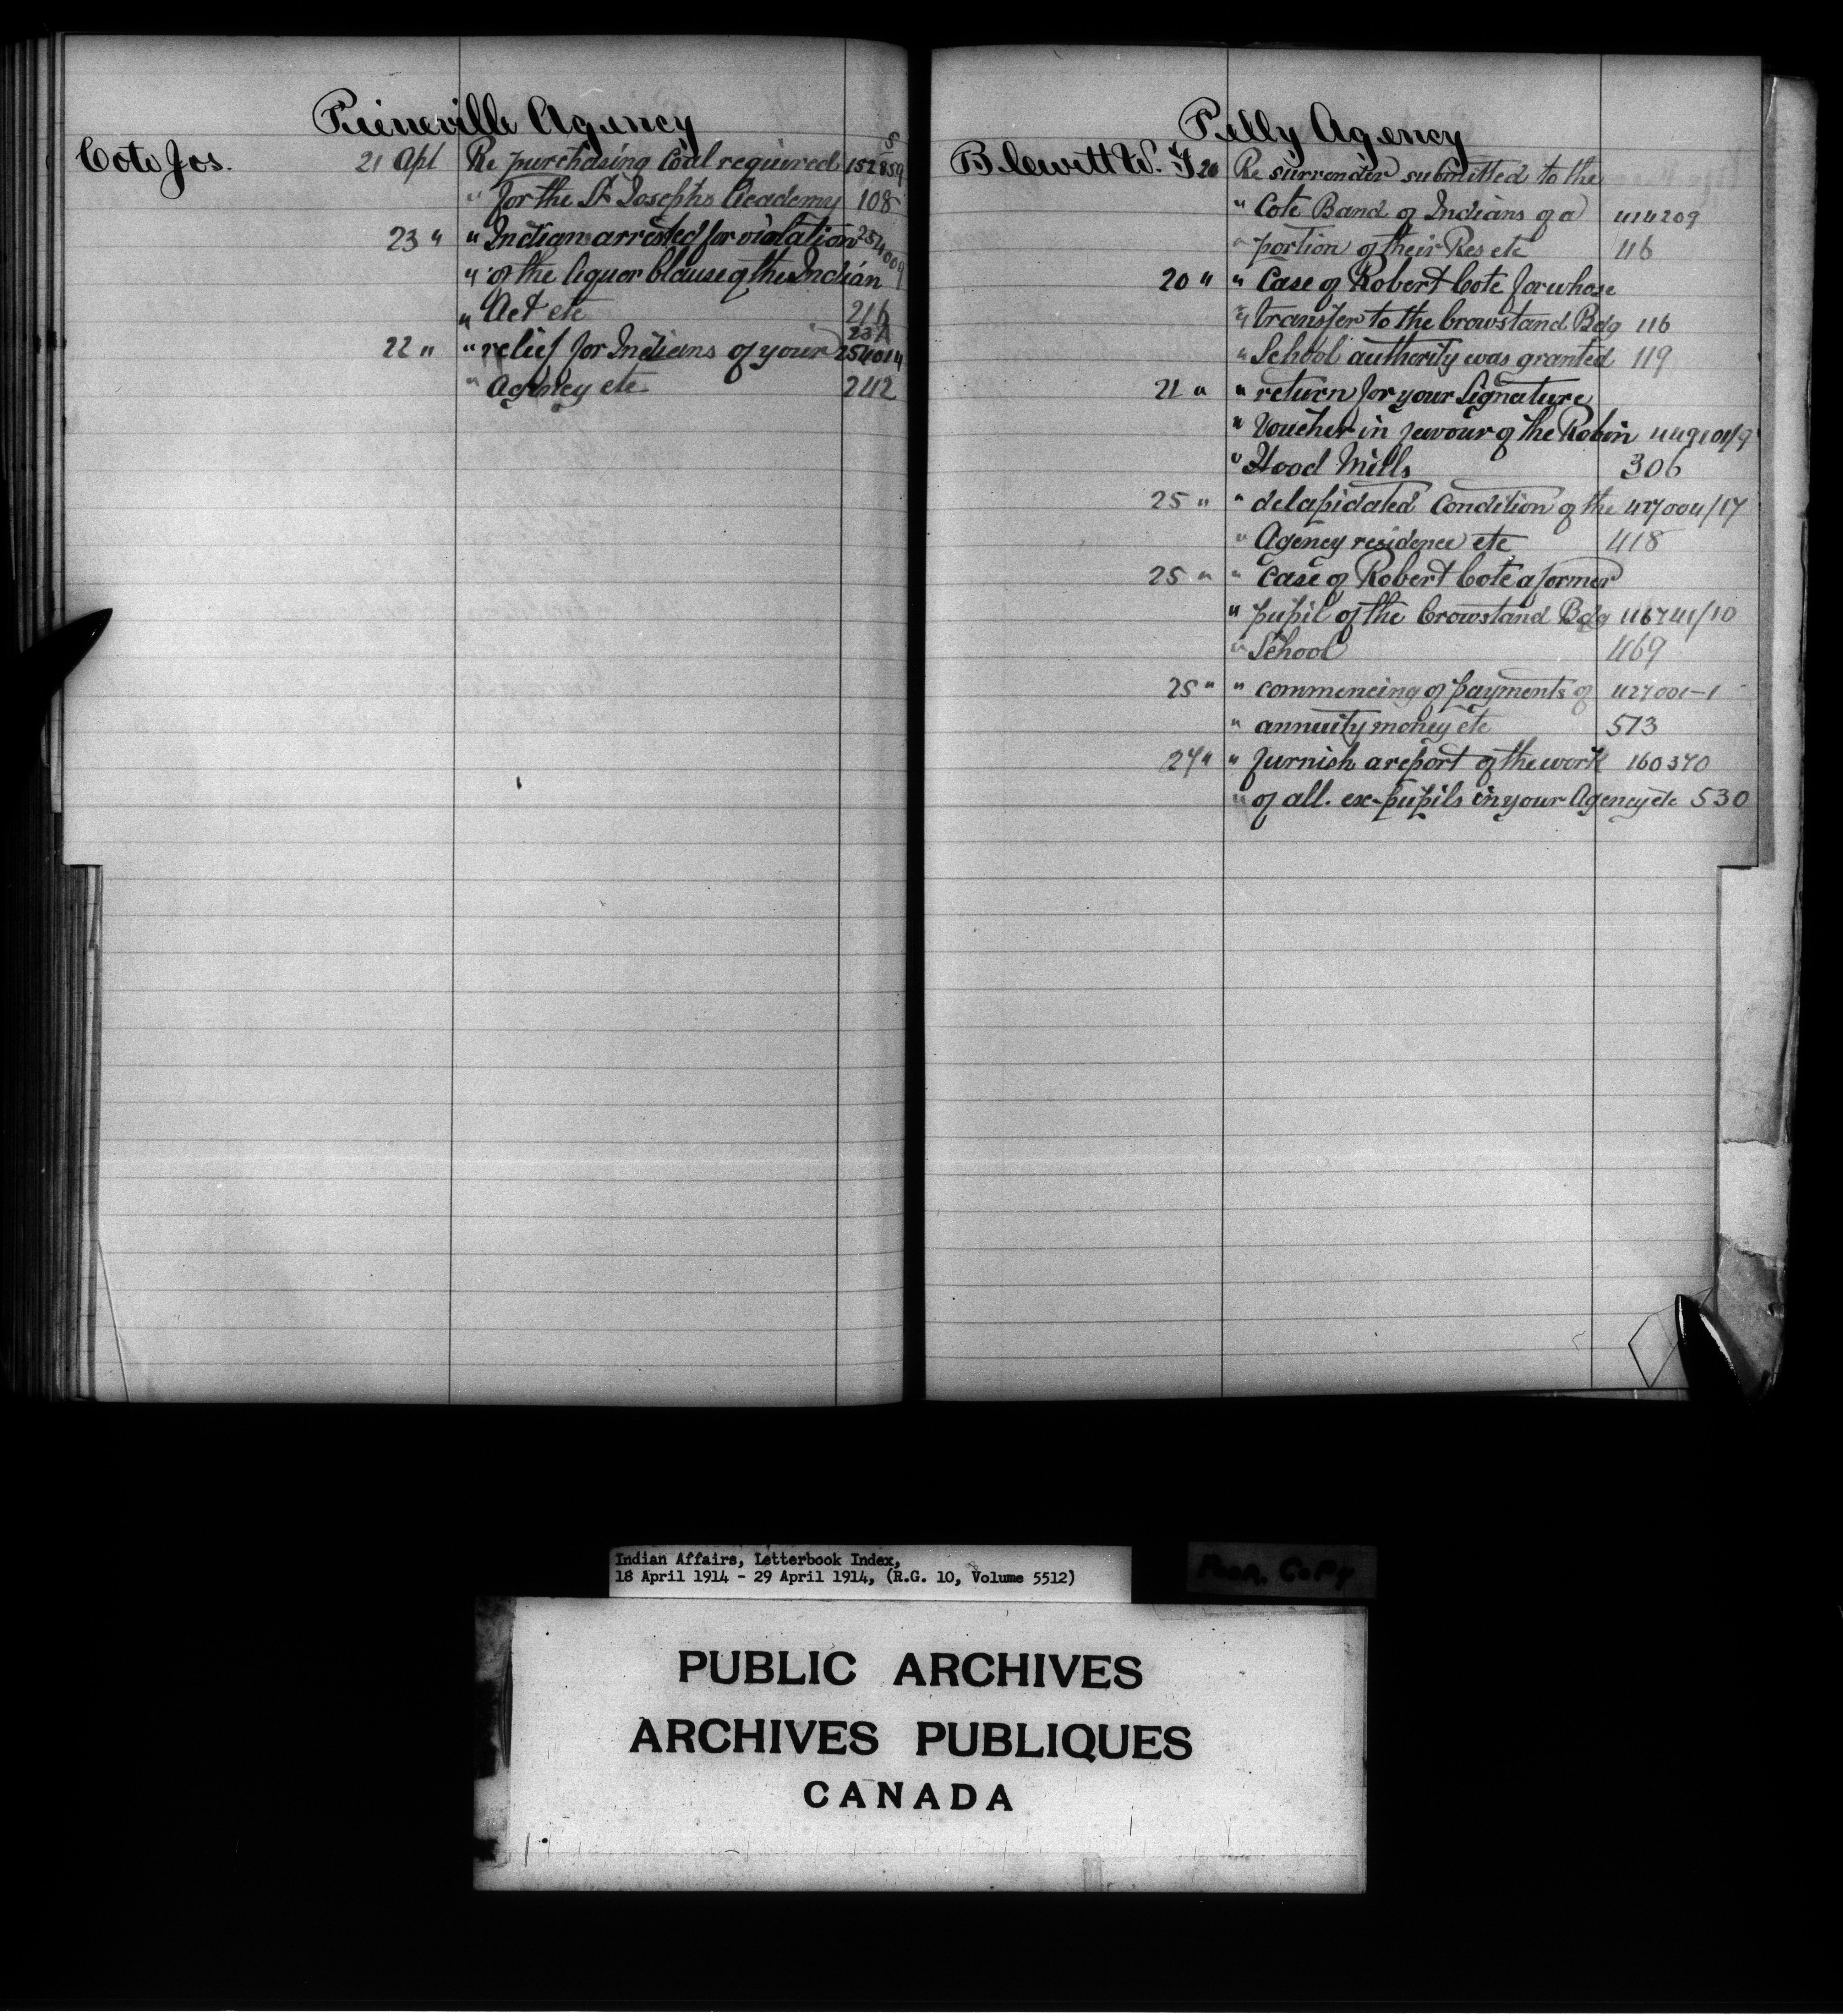 Pierreville Agency
Cote Jos.
21 Apl Re purchasing Coal required 152859
5
" for the St Josephs Academy 108
23 " " Indian arrested for violation 254009
" of the liquor Clause of the Indian
" Act etc 216
237
22 " " relief for Indians of your 254014
" Agency etc 242
Pelly Agency
Blewett W. G
20 Re surrender submitted to the
" Cote Band of Indians of a 414209
" portion of their Res etc 46
20 " " Case of Robert Cote for whose
" transfer to the Crowstand Bdg 116
" School authority was granted 119
21 " " return for your Signature
" Voucher in favour of the Robin 449101/9
" Hood Mills 306
25 " " delapidated Condition of the 427004/17
" Agency residence etc 418
25 " " Case of Robert Cote a former
" pupil of the Crowstand Bdg 116741/10
" School 469
25 " " commencing of payments of 427001-1
" annuity money etc 513
27 " " furnish a report of the work 160370
" of all. ex-pupils in your Agency etc 530
Indian Affairs, Letterbook Index,
18 April 1914 - 29 April 1914, (R.G. 10, Volume 5512)
Poor. Copy
PUBLIC ARCHIVES
ARCHIVES PUBLIQUES
CANADA